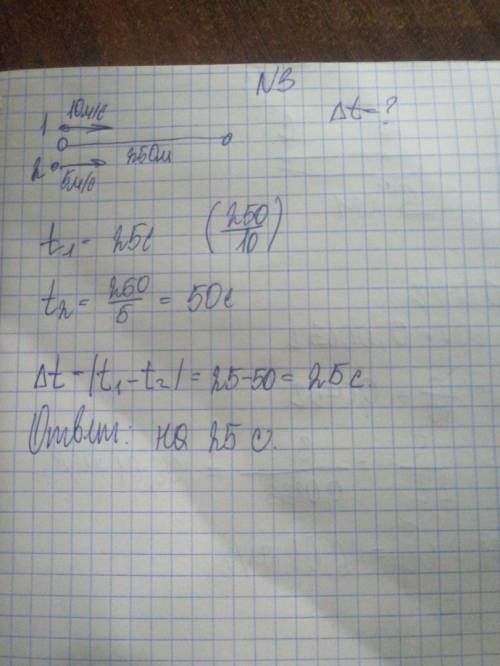 N3
10м/с
Δt-?
1
250м
2
5м/с
t₁ = 25с (250/10)
t₂ = 250/5 = 50с
Δt = |t₁ - t₂| = 25-50 = 25с
Ответ: на 25 с.